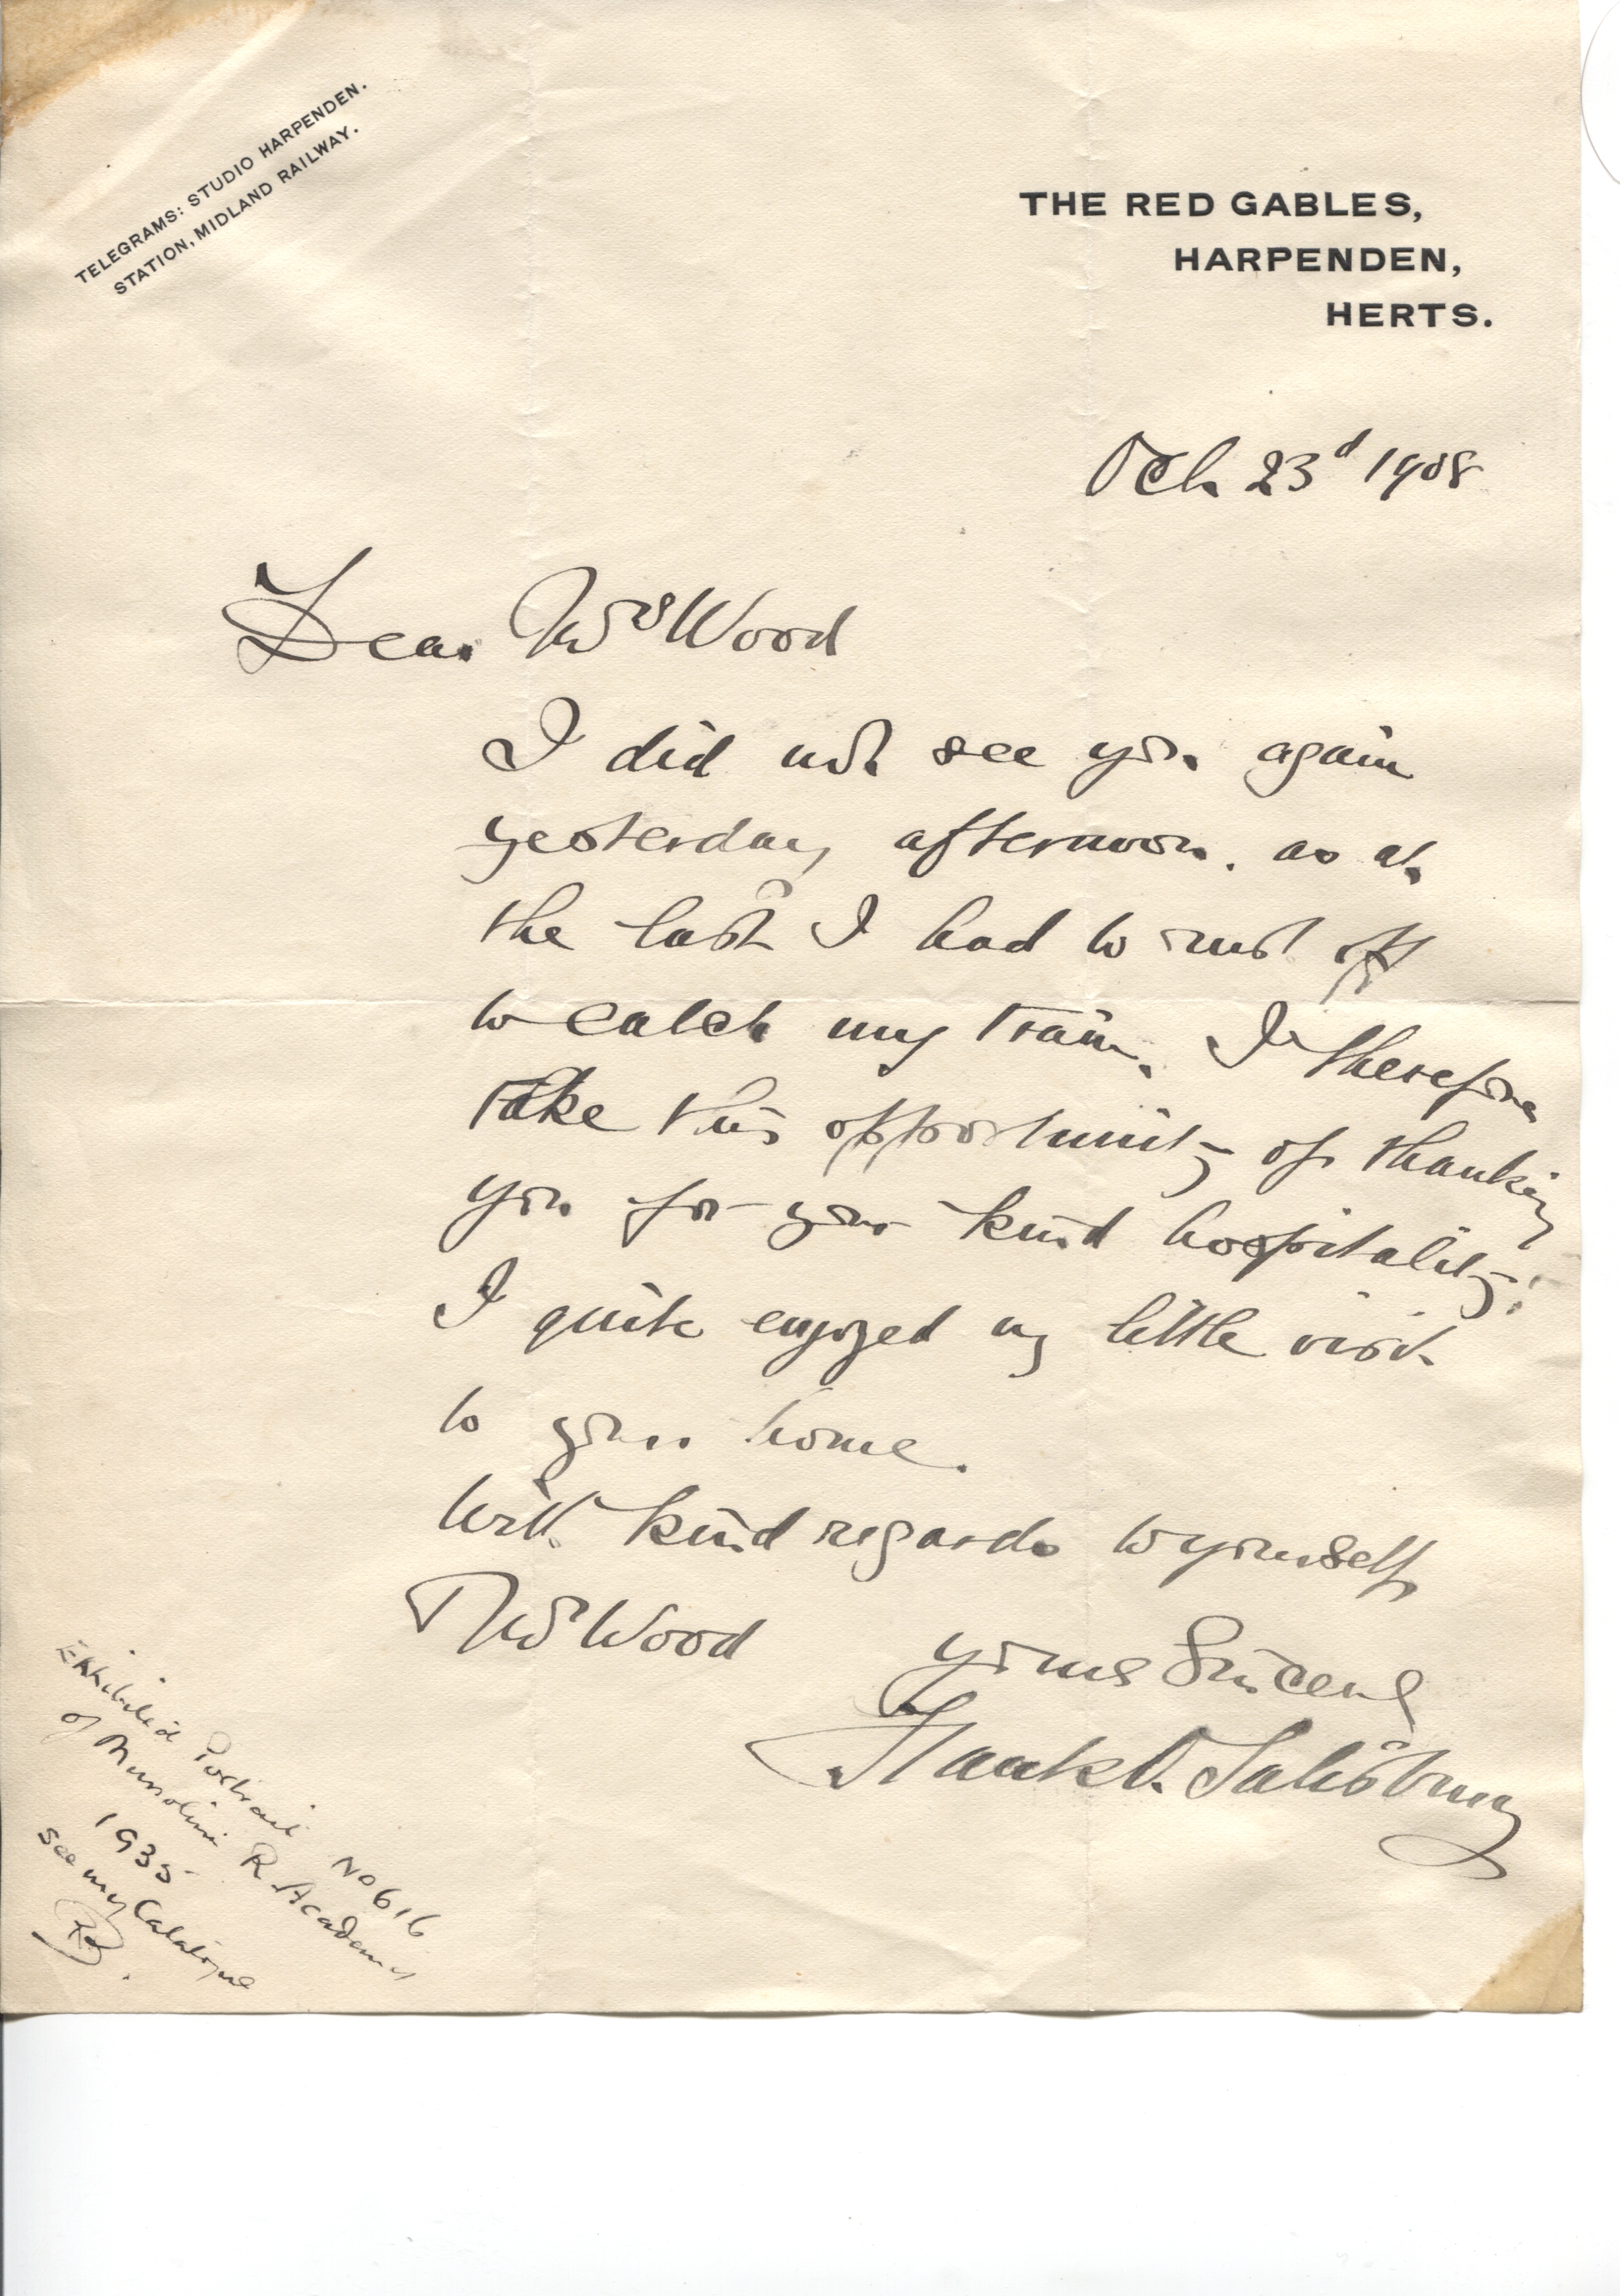 TELEGRAMS: STUDIO HARPENDEN.
STATION, MIDLAND RAILWAY.
THE RED GABLES,
HARPENDEN,
HERTS.
Oct. 23d 1908
Dear Mrs Wood
I did not see you again
yesterday afternoon. as at
the last I had to rush off
to catch my train. I therefore
take this opportunity of thanking
you for your kind hospitality.
I quite enjoyed my little visit
to your home.
With kind regards to yourself
Mr Wood
yours Sincerely
Frank O. Salisbury
Exhibited Portrait No 616
of Mussolini R. Academy
1935
see my Catalogue